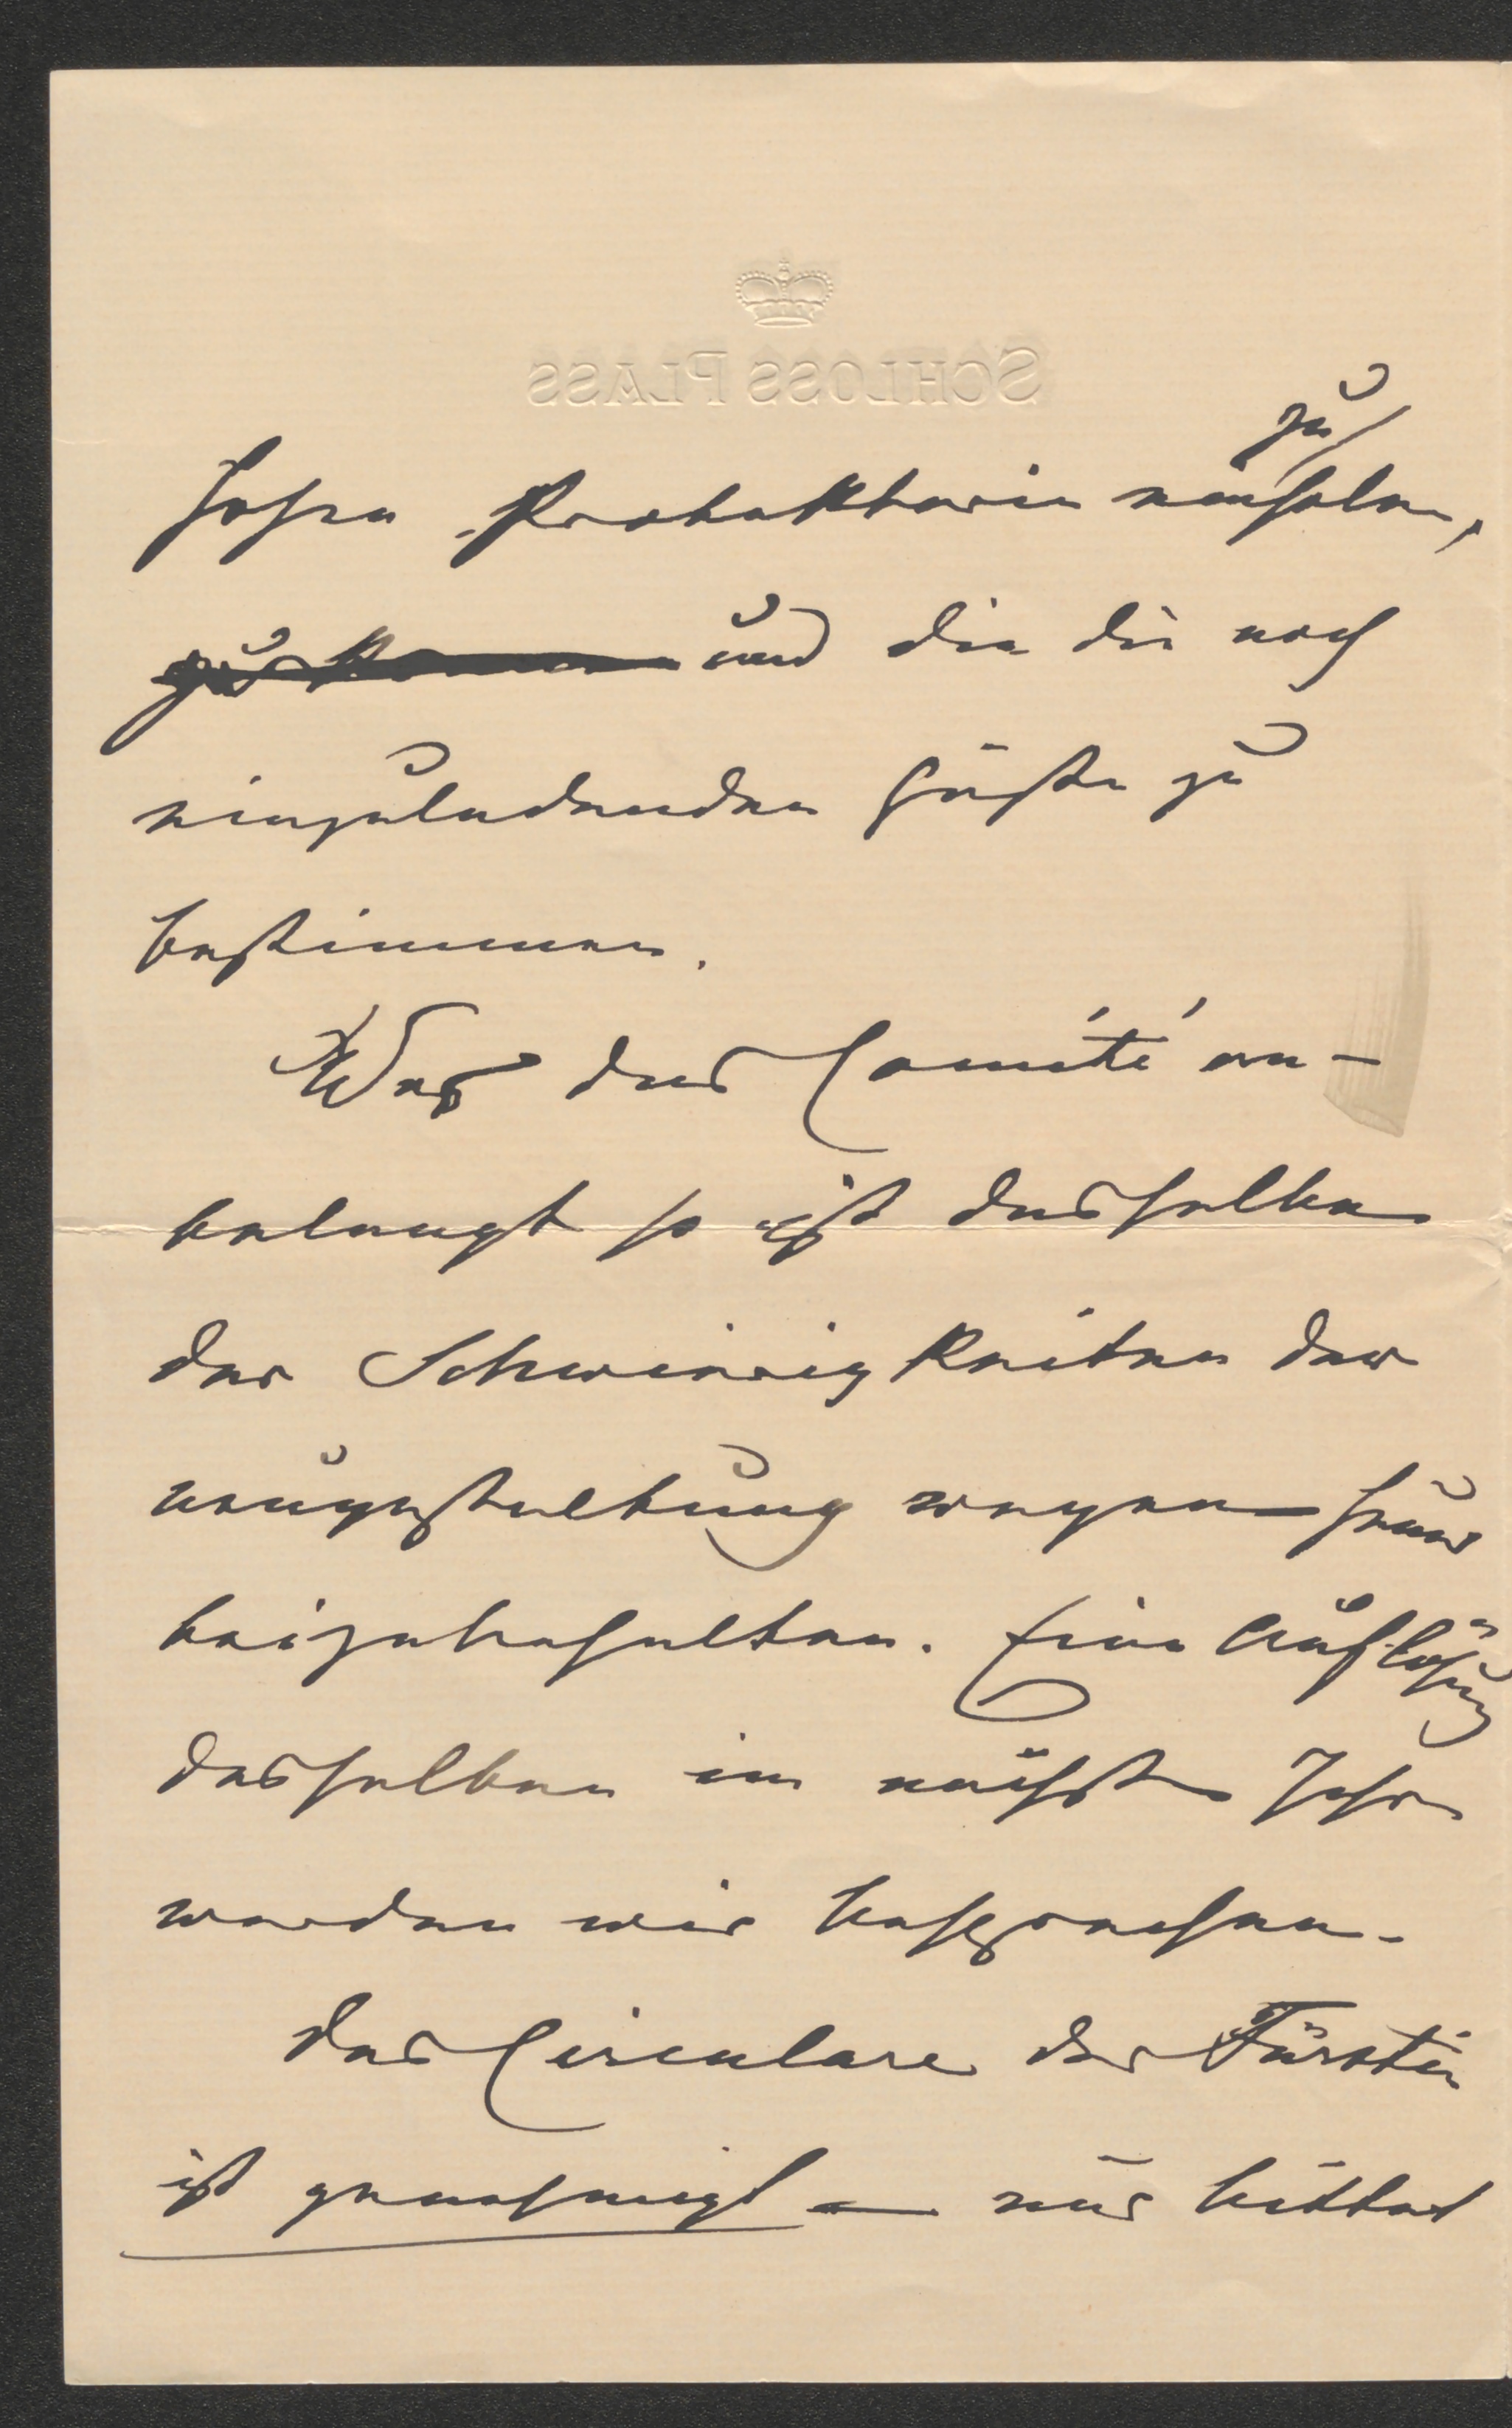 SCHLOSS PLASS
hohen Protektorin
zu
und die die noch
einzuladenden Gäste zu
bestimmen.
Was das Comité an-
belangt so ist dasselbe
der Schwierigkeiten der
neugestaltung wegen heuer
beizubehalten. Eine Auflösung
desselben im nächsten Jahre
werden wir besprechen.
das Circulare der Fürstin
ist genehmigt — nur bittet